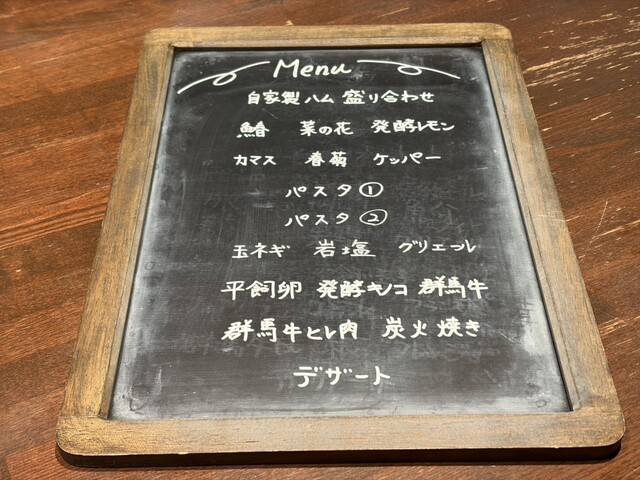 Menu
自家製ハム 盛り合わせ
鰆 菜の花 発酵レモン
カマス 春菊 ケッパー
パスタ①
パスタ②
玉ネギ 岩塩 グリエール
平飼卵 発酵キノコ 群馬牛
群馬牛ヒレ肉 炭火焼き
デザート